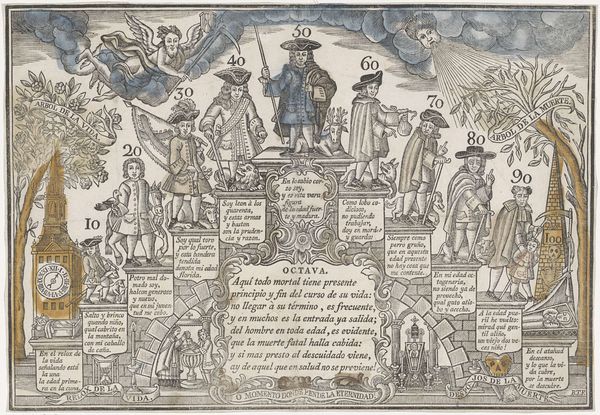 ARBOL DE LA VIDA.
ARBOL DE LA MUERTE.
10
20
30
40
50
60
70
80
90
100
En el relox de
la vida
señalando está
la una
la edad prime-
ra en la cuna.
Salto y brinco
quando niño,
qual cabrito en
la montaña,
con mi caballo
de caña.
Potro mal do-
mado soy,
halcon generoso
y nuevo,
que en mi juven
tud me cebo.
Soy qual toro
por lo fuerte,
y esta bandera
tendida
denota mi edad
florida.
Soy leon á los
quarenta,
y estas armas
y baston
son la pruden-
cia y razon.
En
soy,
y es esta vara
figura
y madura.
Como lobo co-
dicioso,
no pudiendo
trabajar,
doy en morder
y guardar.
Siempre como
perro gruño,
que en aquesta
edad presente
no hay cosa que
me contente.
En mi edad oc-
togenaria,
no siendo ya de
provecho,
qual gato atis-
bo y acecho.
A la edad pue-
ril he vuelto:
mirad qué gen-
til aliño,
un viejo dos ve-
ces niño!
En el ataúd
descanso,
y lo que la vi-
da cubre,
por la muerte
se descubre.
OCTAVA.
Aquí todo mortal tiene presente
principio y fin del curso de su vida:
no llegar á su término, es frequente,
y en muchos es la entrada ya salida;
del hombre en toda edad, es evidente,
que la muerte fatal halla cabida:
y si mas presto al descuidado viene,
ay de aquel que en salud no se previene!
RELOX DE LA VIDA.
DESPOJOS DE LA MUERTE.
O MOMENTO DONDE PENDE LA ETERNIDAD!